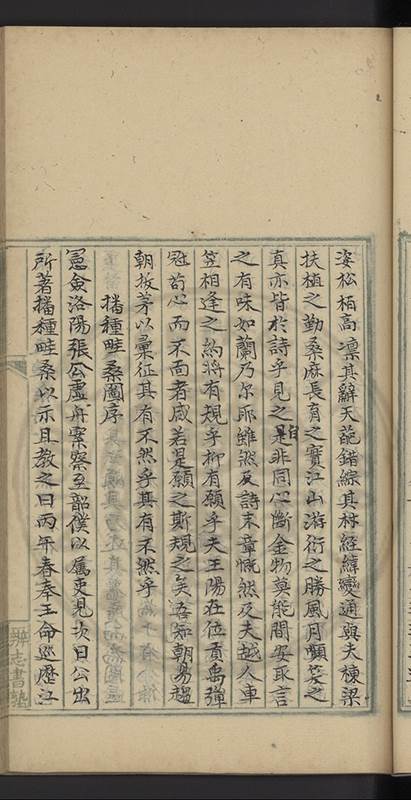 姿松栢高凛其辭天葩錯綜其材經緯變通與夫棟梁
扶植之勤桑麻長育之實江山游衍之勝風月嚬笑之
真亦皆於詩乎見之自是非同心斷金物莫能間安取言
之有味如蘭乃尔耶雖然反詩末章慨然及夫越人車
笠相逢之約將有規乎抑有願乎夫王陽在位貢禹彈
冠苟心而不面者咸若是願之斯規之矣吾知朝昜趨
朝拔茅以彙征其有不然乎其有不然乎
播種畦桑圖序
憲僉洛陽張公虛舟宷察至韶僕以屬吏見次日公出
所著播種畦桑以示且教之曰丙午春奉王命巡歷江
辨志書塾